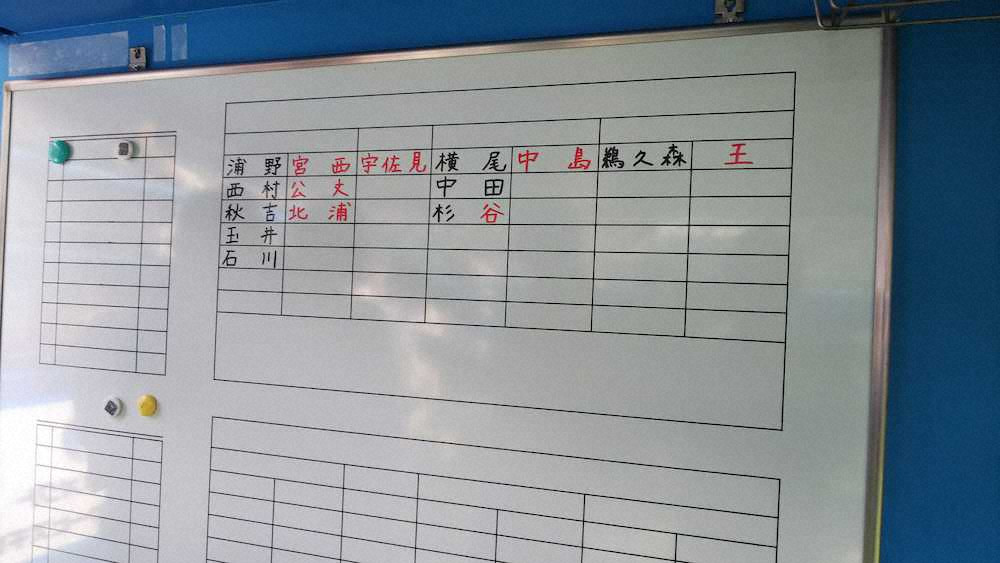 浦野 宮西 宇佐見 横尾 中島 鵜久森 王
西村 公文 中田
秋吉 北浦 杉谷
玉井
石川